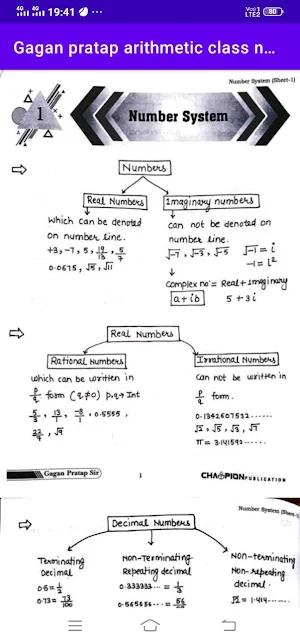 19:41
Vo1) LTE2 80
Gagan pratap arithmetic class n...
Number System (Sheet-1)
1
Number System
Numbers
Real Numbers
Which can be denoted
on number line.
+3, -7, 5, 19/13, 5/7
0.0675, √5, √11
Imaginary numbers
can not be denoted on
number line.
√-7, √-3, √-5 √-1 = i
-1 = i²
Complex no = Real + Imaginary
a + ib 5 + 3i
Real Numbers
Rational Numbers
Which can be written in
p/q form (q≠0) p,q → Int
22/7, √9
Irrational Numbers
Can not be written in
p/q form.
0.1342607532......
√2, √5, √3, √7
π = 3.141592......
Gagan Pratap Sir
1
CHAMPION PUBLICATION
Number System (Sheet-1)
Decimal Numbers
Terminating
Decimal
0.5 = 1/2
0.73 = 73/100
Non-Terminating
Repeating decimal
0.333333... = 1/3
0.565656... = 56/99
Non-terminating
Non-Repeating
decimal.
√2 = 1.414......